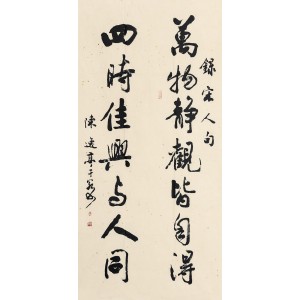 錄宋人句
萬物靜觀皆自得
四時佳興与人同